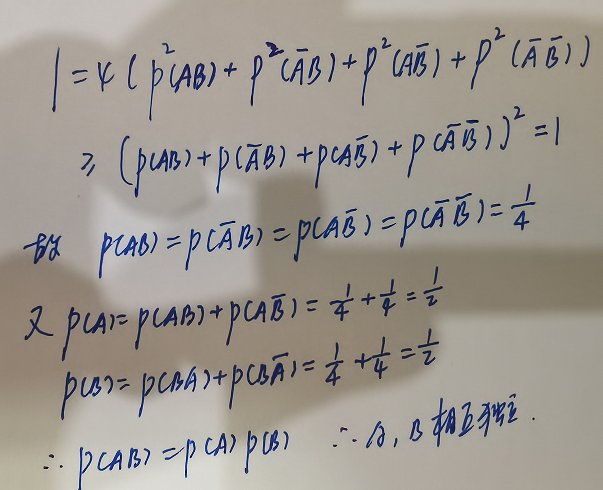 1=4(p²(AB)+p²(ĀB)+p²(AB̄)+p²(ĀB̄))
≥(p(AB)+p(ĀB)+p(AB̄)+p(ĀB̄))²=1
故 p(AB)=p(ĀB)=p(AB̄)=p(ĀB̄)=1/4
又 p(A)=p(AB)+p(AB̄)=1/4+1/4=1/2
p(B)=p(BA)+p(BĀ)=1/4+1/4=1/2
∴ p(AB)=p(A)p(B) ∴ A,B相互独立.